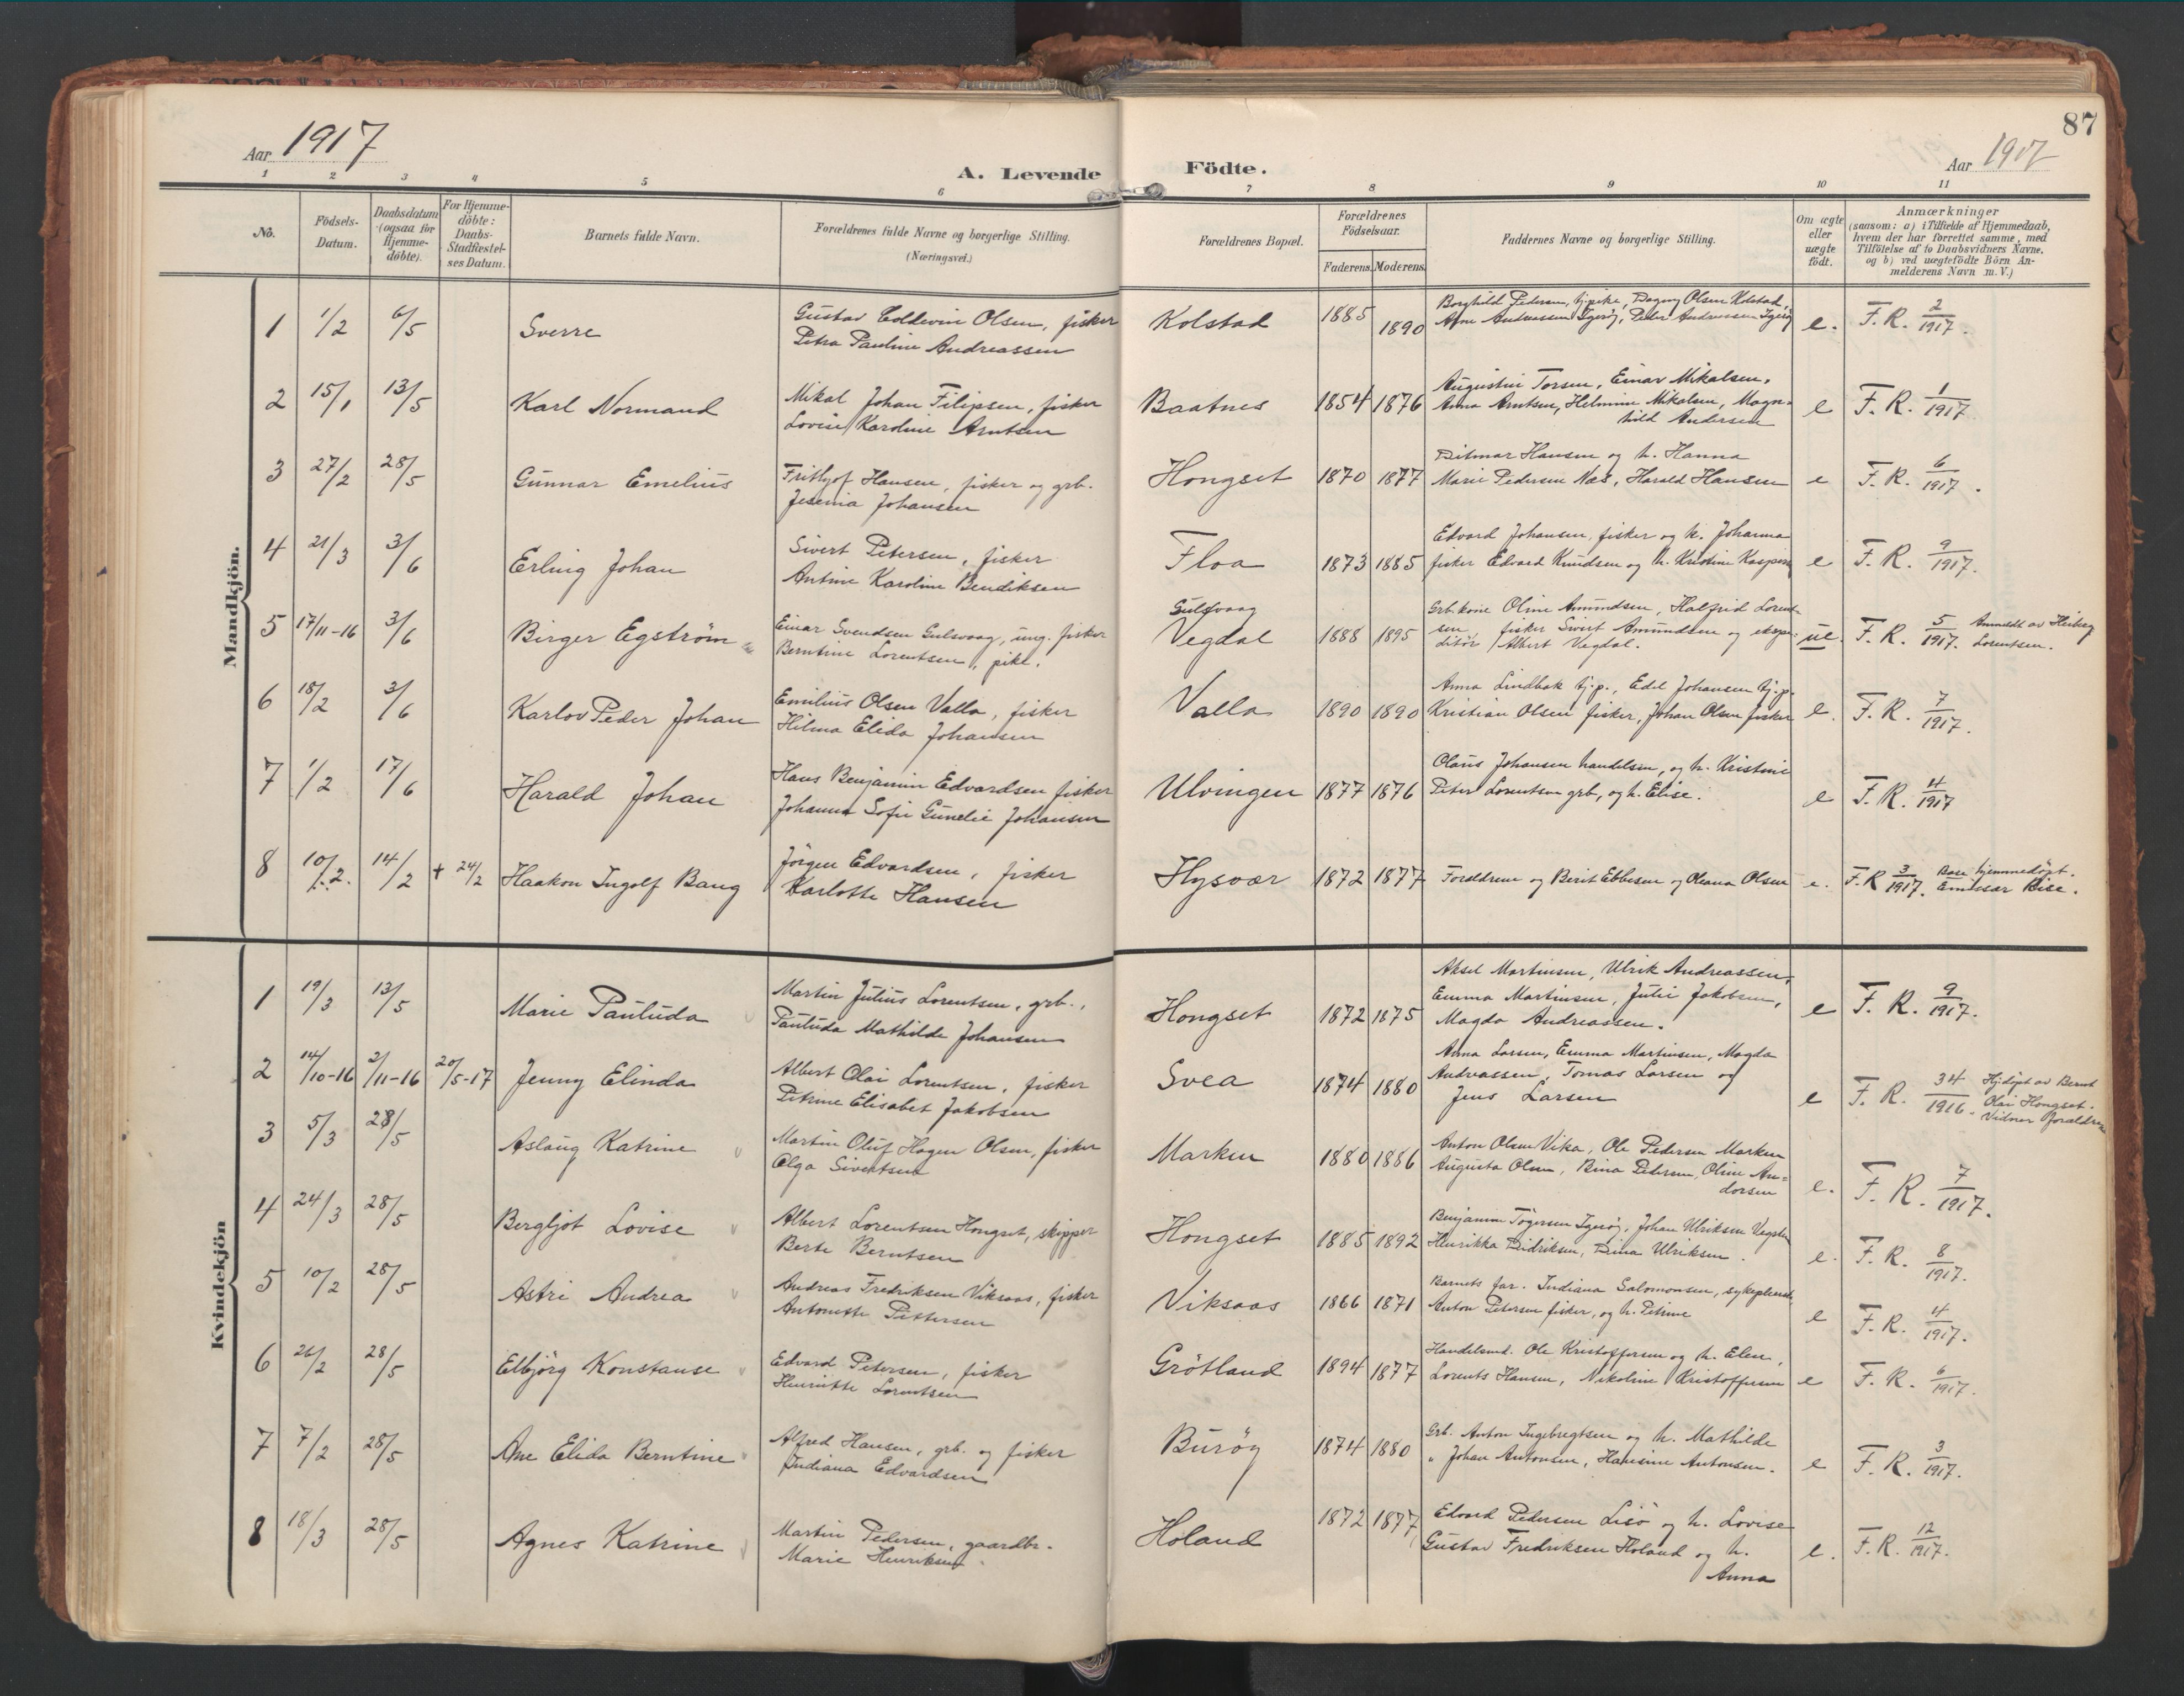 87
Aar 1917
A. Levende Födte.
Aar 1917
1 2 3 4 5 6 7 8 9 10 11
No.
Födsels-
Datum.
Daabsdatum
(ogsaa for
Hjemme-
döbte).
For Hjemme-
döbte:
Daabs-
Stadfæstel-
ses Datum.
Barnets fulde Navn.
Forældrenes fulde Navne og borgerlige Stilling.
(Næringsvei.)
Forældrenes Bopæl.
Forældrenes
Födselsaar.
Faderens. Moderens.
Faddernes Navne og borgerlige Stilling.
Om ægte
eller
uægte
födt.
Anmærkninger
(saasom: a) i Tilfælde af Hjemmedaab,
hvem der har forrettet samme, med
Tilföielse af to Daabsvidners Navne.
og b) ved uægtefödte Börn An-
melderens Navn m. V.)
Mandkjön.
1 1/2 6/5 Sverre
Gustav Coldevin Olsen, fisker
Petra Pauline Andreassen
Kolstad 1885 1890
Borghild Pedersen, tj.pike, Dagny Olsen Kolstad,
Arne Andreassen Igerøy, Peder Andreassen Igerøy
e. F. R. 2/1917.
2 15/1 13/5 Karl Normand
Mikal Johan Filipsen, fisker
Lovise Karoline Arntsen
Baatnes 1854 1876
Augustin Torsen, Einar Mikalsen,
Anna Arntsen, Helmine Mikalsen, Magn-
hild Andersen
e F. R. 1/1917
3 27/2 28/5 Gunnar Emelius
Frithjof Hansen, fisker og grb.
Jesenia Johansen
Hongset 1870 1877
Ditmar Hansen og h. Hanna
Marie Pedersen Næs, Harald Hansen
e F. R. 6/1917.
4 21/3 3/6 Erling Johan
Sivert Petersen, fisker
Antine Karoline Bendiksen
Floa 1873 1885
Edvard Johansen, fisker og h. Johanna
fisker Edvard Knudsen og h. Kristine
e F. R. 9/1917.
5 17/11-16 3/6 Birger Egström
Einar Svendsen Gulsvaag, ung. fisker
Berntine Lorentsen, pike.
Gulsvaag
Vegdal 1888 1895
Grb.kone Oline Amundsen, Halfrid Lorent-
sen, fisker Sivert Amundsen og ekspe-
ditör Albert Vegdal.
ue. F. R. 5/1917. Anmeldt av
Lorentsen.
6 18/2 3/6 Karlov Peder Johan
Emilius Olsen Valla, fisker
Hilma Elida Johansen
Valla 1890 1890
Anna Lindbak tj.p., Edel Johansen tj.p.
Kristian Olsen fisker, Johan Olsen fisker
e. F. R. 7/1917.
7 1/2 17/6 Harald Johan
Hans Benjamin Edvardsen fisker
Johanna Sofie Gunelie Johansen
Ulvingen 1877 1876
Olaus Johansen handelsm, og h. Kristine
Peter Lorentsen grb, og h. Elise.
e F. R. 4/1917
8 10/2. 14/2 + 24/2 Haakon Ingolf Bang
Jörgen Edvardsen, fisker
Karlotte Hansen
Hysvær 1872 1877
Forældrene og Berit Ebbesen og Oleana Olsen
e. F. R 3/1917. hjemmedøpt.
Emissær Bise.
Kvindekjön
1 19/3 13/5 Marie Pauluda
Martin Julius Lorentsen, grb.,
Pauluda Mathilde Johansen
Hongset 1872 1875
Aksel Martinsen, Ulrik Andreassen,
Emma Martinsen, Julie Jakobsen,
Magda Andreassen.
e F. R. 9/1917.
2 14/10-16 2/11-16 20/5-17 Jenny Elinda
Albert Olai Lorentsen, fisker
Petrine Elisabet Jakobsen
Svea 1874 1880
Anna Larsen, Emma Martinsen, Magda
Andreassen, Tomas Larsen og
Jens Larsen
e F. R. 34/1916. Hjdöpt av Bernt
Olai Hongset.
Vidner forældrene
3 5/3 28/5 Aslaug Katrine
Martin Oluf Hagen Olsen, fisker
Olga Sivertsen
Marken 1880 1886
Anton Olsen Vika, Ole Pedersen Marken
Augusta Olsen, Bina Pedersen, Oline An-
dorsen
e. F. R. 7/1917.
4 24/3 28/5 Bergljot Lovise
Albert Lorentsen Hongset, skipper
Berte Berntsen
Hongset 1885 1892
Benjamin Tögersen Igerøy, Johan Ulriksen
Henrikka Didriksen, Dina Ulriksen.
e. F. R. 8/1917.
5 10/2 28/5 Astri Andrea
Andreas Fredriksen Viksaas, fisker
Antonette Pettersen
Viksaas 1866 1871
Barnets far. Indiana Salomonsen, sykepleiersk.
Anton Petersen fisker, og h. Petrine
e F. R. 4/1917.
6 26/2 28/5 Elbjörg Konstanse
Edvard Petersen, fisker
Henriette Lorentsen
Grötland 1894 1877
Handelsmd. Ole Kristoffersen og h. Elen,
Lorents Hansen, Nikoline Kristoffersen
e F. R. 6/1917.
7 7/2 28/5 Ane Elida Berntine
Alfred Hansen, grb. og fisker
Indiana Edvardsen
Buröy 1874 1880
Grb. Anton Ingebregtsen og h. Mathilde
" Johan Antonsen, Hansine Antonsen.
e F. R. 3/1917.
8 18/3 28/5 Agnes Katrine
Martin Pedersen, gaardbr.
Marie Henriksen
Holand 1872 1877
Edvard Pedersen Lisö og h. Lovise
Gustav Fredriksen Holand og h.
Anna
e. F. R. 12/1917.